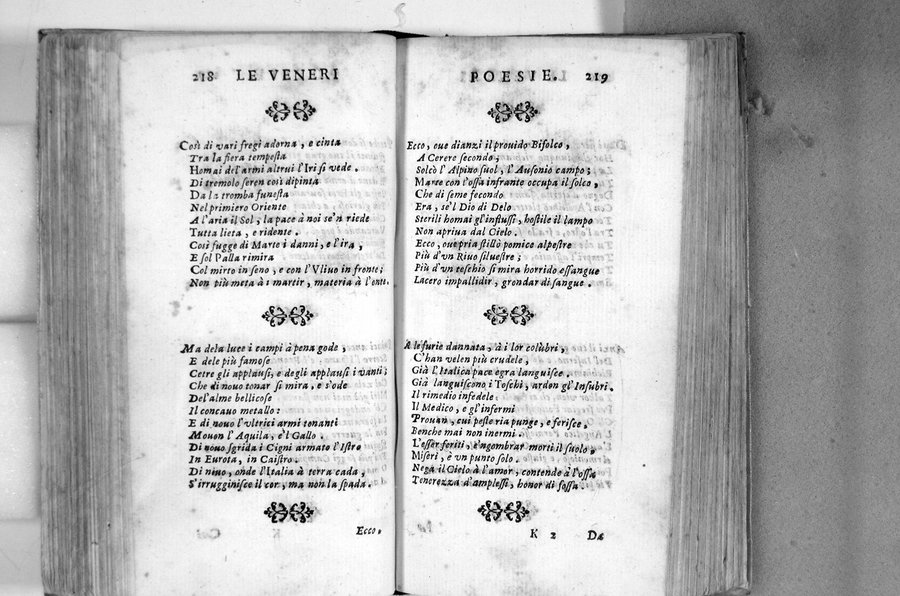 218 LE VENERI
Così di vari fregi adorna, e cinta
Tra la fiera tempesta
Homai del'armi altrui l'Iri si vede.
Di tremolo seren così dipinta
Da la tromba funesta
Nel primiero Oriente
A l'aria il Sol, la pace à noi se'n riede
Tutta lieta, e ridente.
Così fugge di Marte i danni, e l'ira,
E sol Palla rimira
Col mirto in seno, e con l'Vliuo in fronte;
Non più meta à i martir, materia à l'onte.
Ma dela luce i campi à pena gode,
E dele più famose
Cetre gli applausi, e degli applausi i vanti;
Che di nouo tonar si mira, e s'ode
Del'alme bellicose
Il concauo metallo:
E di nouo l'vltrici armi tonanti
Mouon l'Aquila, e'l Gallo.
Di nouo sgrida i Cigni armato l'Istro
In Eurota, in Caistro.
Di nuuo, onde l'Italia à terra cada,
S'irrugginisce il cor, ma non la spada.
Ecco,
POESIE. 219
Ecco, oue dianzi il prouido Bifolco,
A Cerere secondo;
Solcò l'Alpino suol, l'Ausonio campo;
Marte con l'ossa infrante occupa il solco,
Che di seme fecondo
Era, se'l Dio di Delo
Sterili homai gl'influssi, hostile il lampo
Non apriua dal Cielo.
Ecco, oue pria stillò pomice alpestre
Più d'vn Riuo siluestre;
Più d'vn teschio si mira horrido essangue
Lacero impallidir, grondar di sangue.
A le furie dannata, à i lor colùbri,
C'han velen più crudele,
Già l'Italica pace egra languisce.
Già languiscono i Toschi, ardon gl'Insubri.
Il rimedio infedele
Il Medico, e gl'infermi
Prouan, cui peste ria punge, e ferisce,
Benche mai non inermi.
L'esser feriti, e'ngombrar morti il suolo,
Miseri, è vn punto solo.
Nega il Cielo à l'amor, contende à l'ossa
Tenerezza d'amplessi, honor di fossa.
K 2 Da